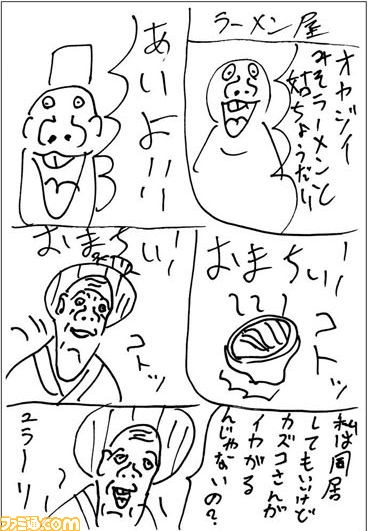 ラーメン屋
オヤジィ
みそラーメンと
姑ちょうだい
あいよ!!
おまちぃ!
コトッ
おまちぃ!
コトッ
私は同居
してもいいけど
カズコさんが
イヤがる
んじゃないの?
ユラ〜リ
ファミ通.com